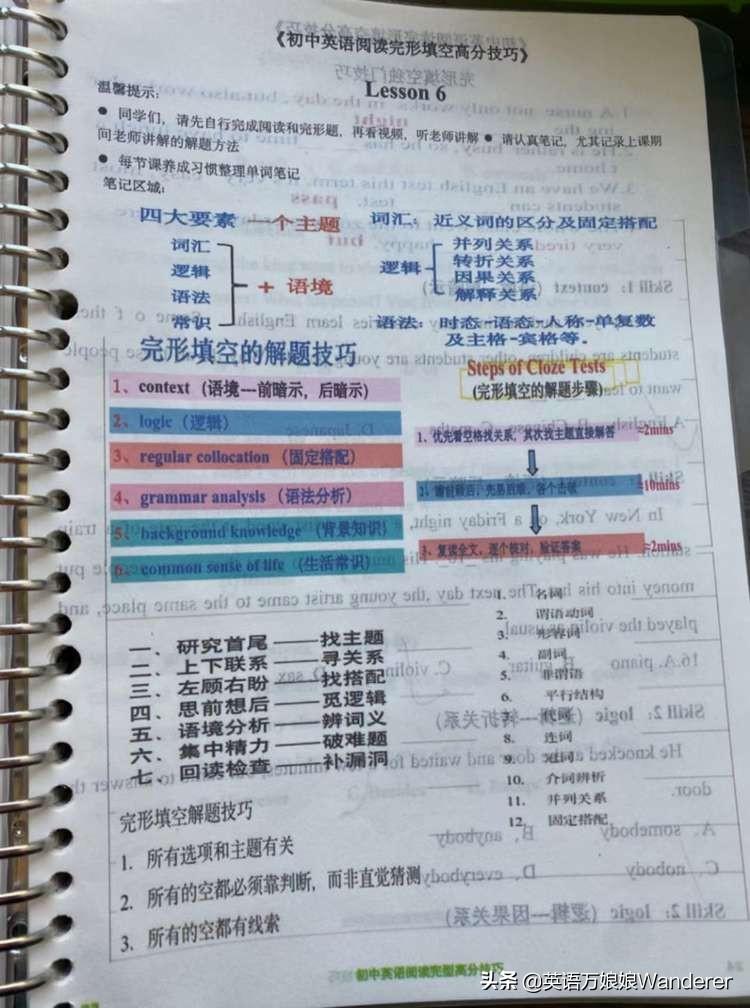 《初中英语阅读完形填空高分技巧》
Lesson 6
温馨提示：
● 同学们，请先自行完成阅读和完形题，再看视频，听老师讲解 ● 请认真笔记，尤其记录上课期
间老师讲解的解题方法
● 每节课养成习惯整理单词笔记
笔记区域：
四大要素 一个主题
词汇
逻辑
语法
常识
+ 语境
词汇：近义词的区分及固定搭配
逻辑
并列关系
转折关系
因果关系
解释关系
语法：时态-语态-人称-单复数
及主格-宾格等。
完形填空的解题技巧
1、context（语境---前暗示，后暗示）
2、logic（逻辑）
3、regular collocation（固定搭配）
4、grammar analysis（语法分析）
5、background knowledge（背景知识）
6、common sense of life（生活常识）
Steps of Cloze Tests
(完形填空的解题步骤)
1、优先看空格找关系，其次找主题直接解答 ≈2mins
2、瞻前顾后，先易后难，各个击破 ≈10mins
3、复读全文，逐个核对，验证答案 ≈2mins
一、研究首尾——找主题
二、上下联系——寻关系
三、左顾右盼——找搭配
四、思前想后——觅逻辑
五、语境分析——辨词义
六、集中精力——破难题
七、回读检查——补漏洞
1. 名词
2. 谓语动词
3. 形容词
4. 副词
5. 非谓语
6. 平行结构
7. 代词
8. 连词
9. 冠词
10. 介词辨析
11. 并列关系
12. 固定搭配
完形填空解题技巧
1. 所有选项和主题有关
2. 所有的空都必须靠判断，而非直觉猜测
3. 所有的空都有线索
初中英语阅读完型高分技巧
头条 @英语万娘娘Wanderer